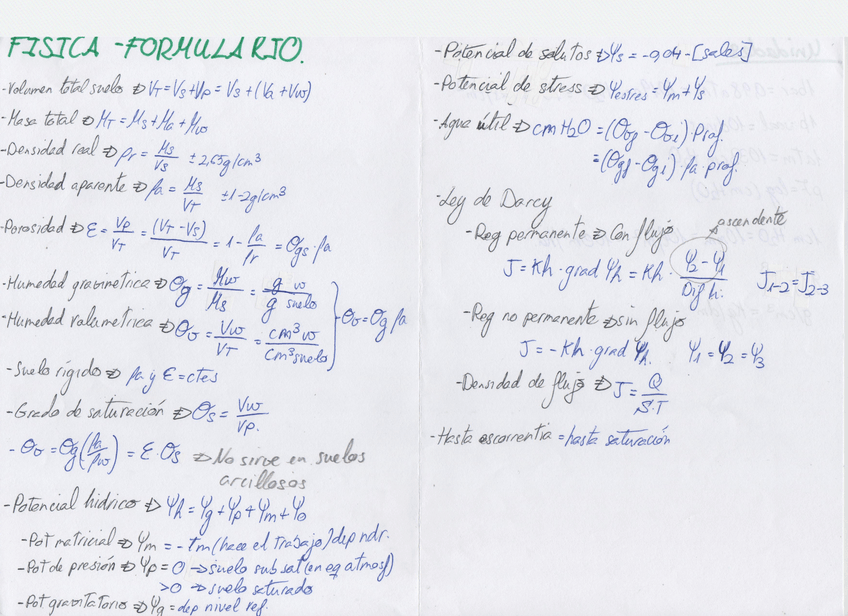 FISICA - FORMULARIO.
- Volumen total suelo ⇒ VT = Vs + Vp = Vs + (Va + Vw)
- Masa total ⇒ MT = Ms + Ma + Mw
- Densidad real ⇒ ρr = Ms/Vs ± 2,65 g/cm³
- Densidad aparente ⇒ ρa = Ms/VT ± 1-2 g/cm³
- Porosidad ⇒ ε = Vp/VT = (VT - Vs)/VT = 1 - ρa/ρr = Θgs · ρa
- Humedad gravimetrica ⇒ Θg = Mw/Ms = g w/g suelo
- Humedad volumetrica ⇒ Θv = Vw/VT = cm³ w/cm³ suelo } - Θv = Θg ρa
- Suelo rígido ⇒ ρa y ε = ctes
- Grado de saturación ⇒ Θs = Vw/Vp.
- Θv = Θg (ρa/ρw) = ε · Θs ⇒ No sirve en suelos
arcillosos
- Potencial hídrico ⇒ Ψh = Ψg + Ψp + Ψm + Ψo
- Pot matricial ⇒ Ψm = - Tm (hace el trabajo) dep ndr.
- Pot de presión ⇒ Ψp = 0 → suelo subsat (en eq atmosf)
>0 → suelo saturado
- Pot gravitatorio ⇒ Ψg = dep nivel ref.
- Potencial de solutos ⇒ Ψs = -0,04 · [sales]
- Potencial de stress ⇒ Ψestres = Ψm + Ψs
- Agua útil ⇒ cm H2O = (Θvg - Θvs) Prof.
= (Θgf - Θgs) ρa · prof.
- Ley de Darcy
ascendente
- Reg permanente ⇒ Con flujo
J = Kh · grad Ψh = Kh · (Ψ2 - Ψ1)/Dif h. J1-2 = J2-3
- Reg no permanente ⇒ sin flujo
J = - Kh · grad Ψh. Ψ1 = Ψ2 = Ψ3
- Densidad de flujo ⇒ J = Q/S·T
- Hasta escorrentia = hasta saturación